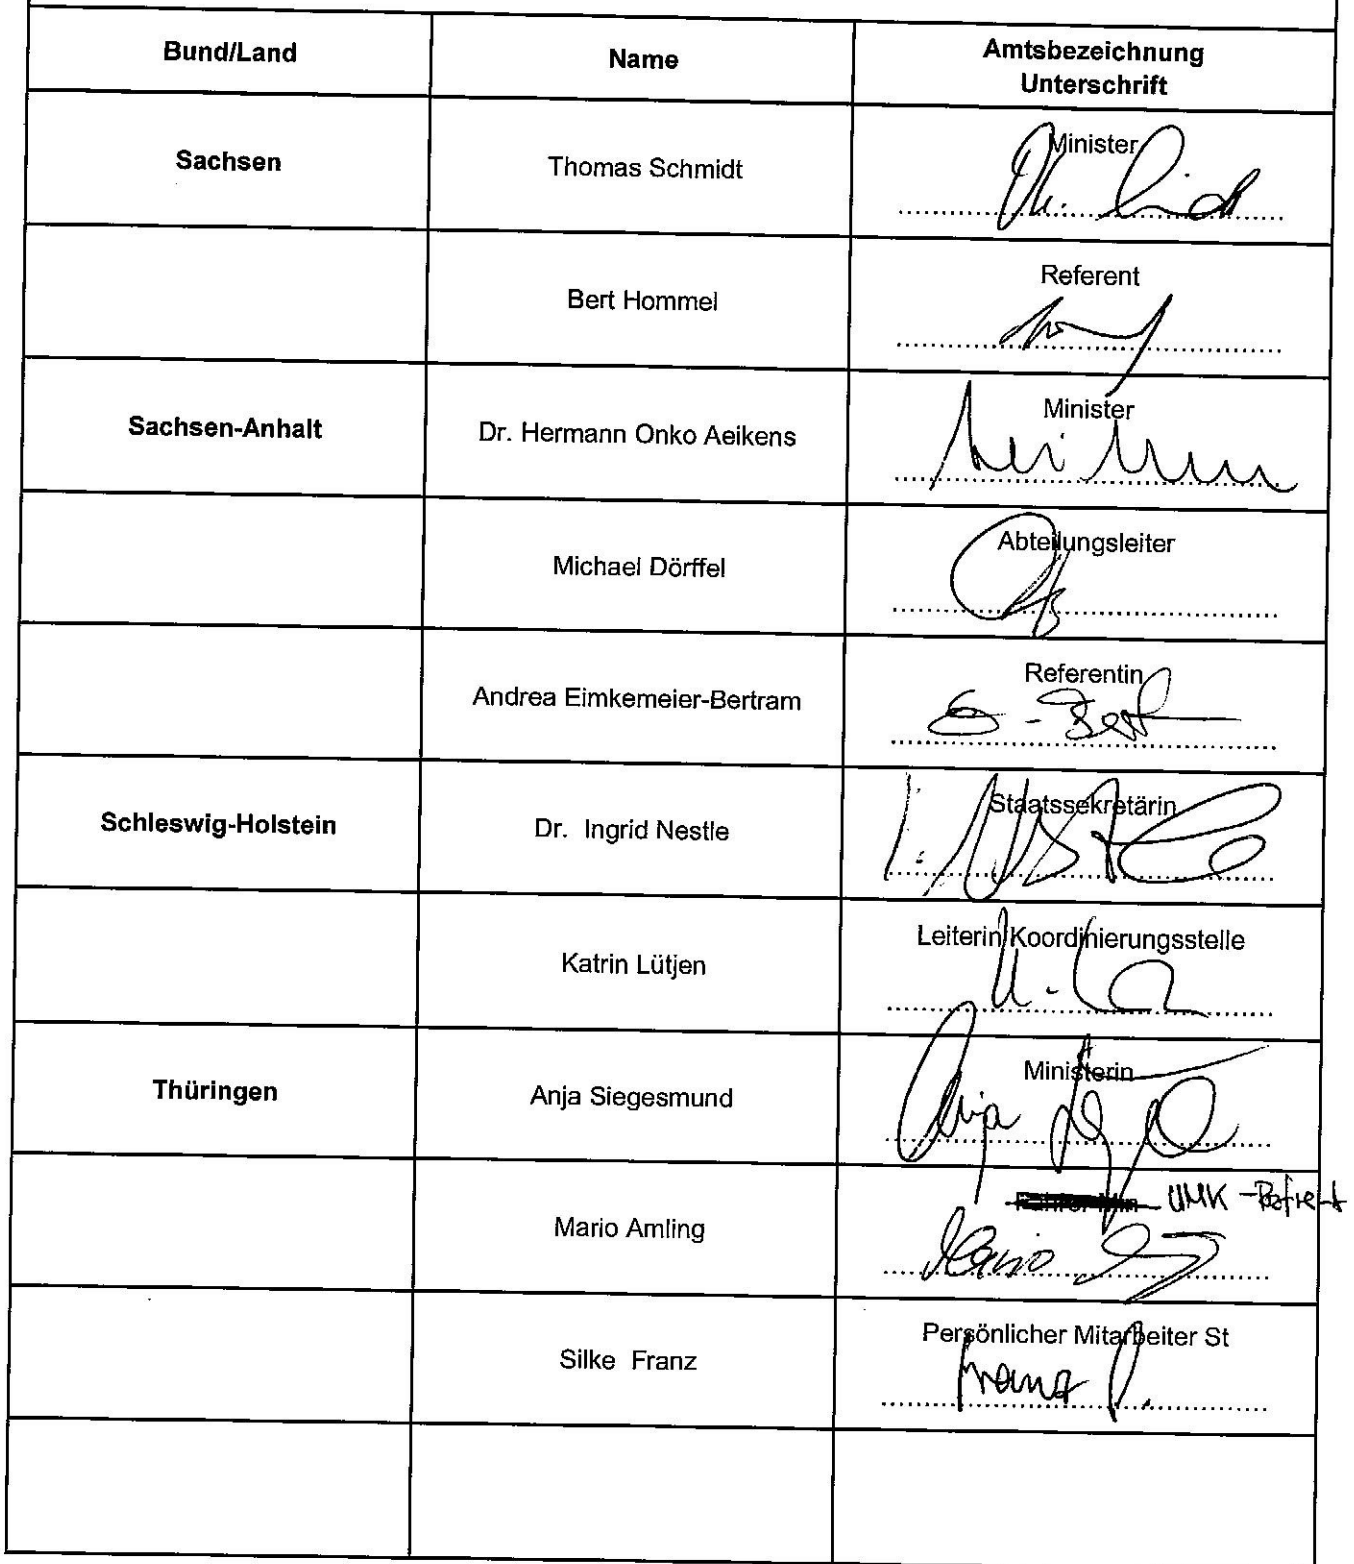 Bund/Land Name Amtsbezeichnung
Unterschrift
Sachsen Thomas Schmidt Minister
Bert Hommel Referent
Sachsen-Anhalt Dr. Hermann Onko Aeikens Minister
Michael Dörffel Abteilungsleiter
Andrea Eimkemeier-Bertram Referentin
Schleswig-Holstein Dr. Ingrid Nestle Staatssekretärin
Katrin Lütjen Leiterin Koordinierungsstelle
Thüringen Anja Siegesmund Ministerin
Anja
Mario Amling UMK-Referent
Mario
Silke Franz Persönlicher Mitarbeiter St
Franz